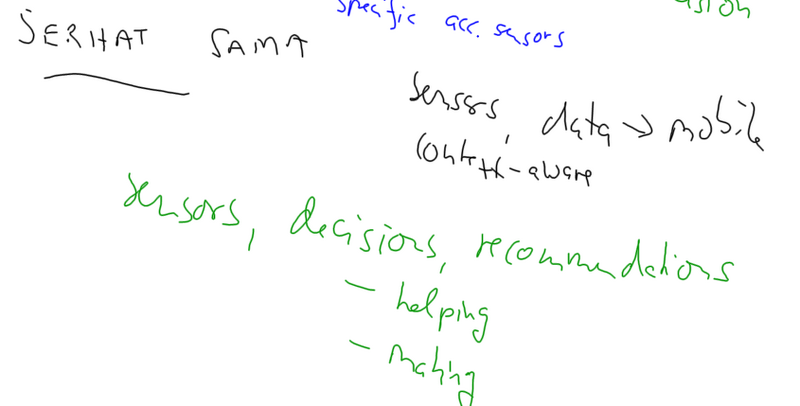 specific acc. sensors
SERHAT SAMA
sensors, data → mobile
context-aware
sensors, decisions, recommendations
- helping
- making